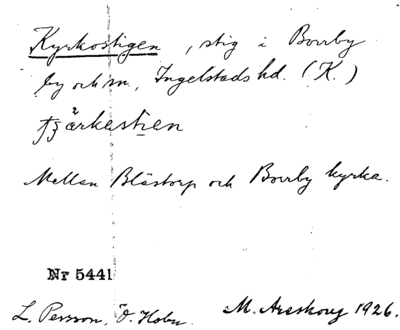 Kyrkostigen, stig i Borrby
by och sn, Ingelstads hd. (K.)
Mellan Blästorp och Borrby kyrka.
Nr 5441
L. Persson, Ö. Hoby. M. Areskoug 1926.